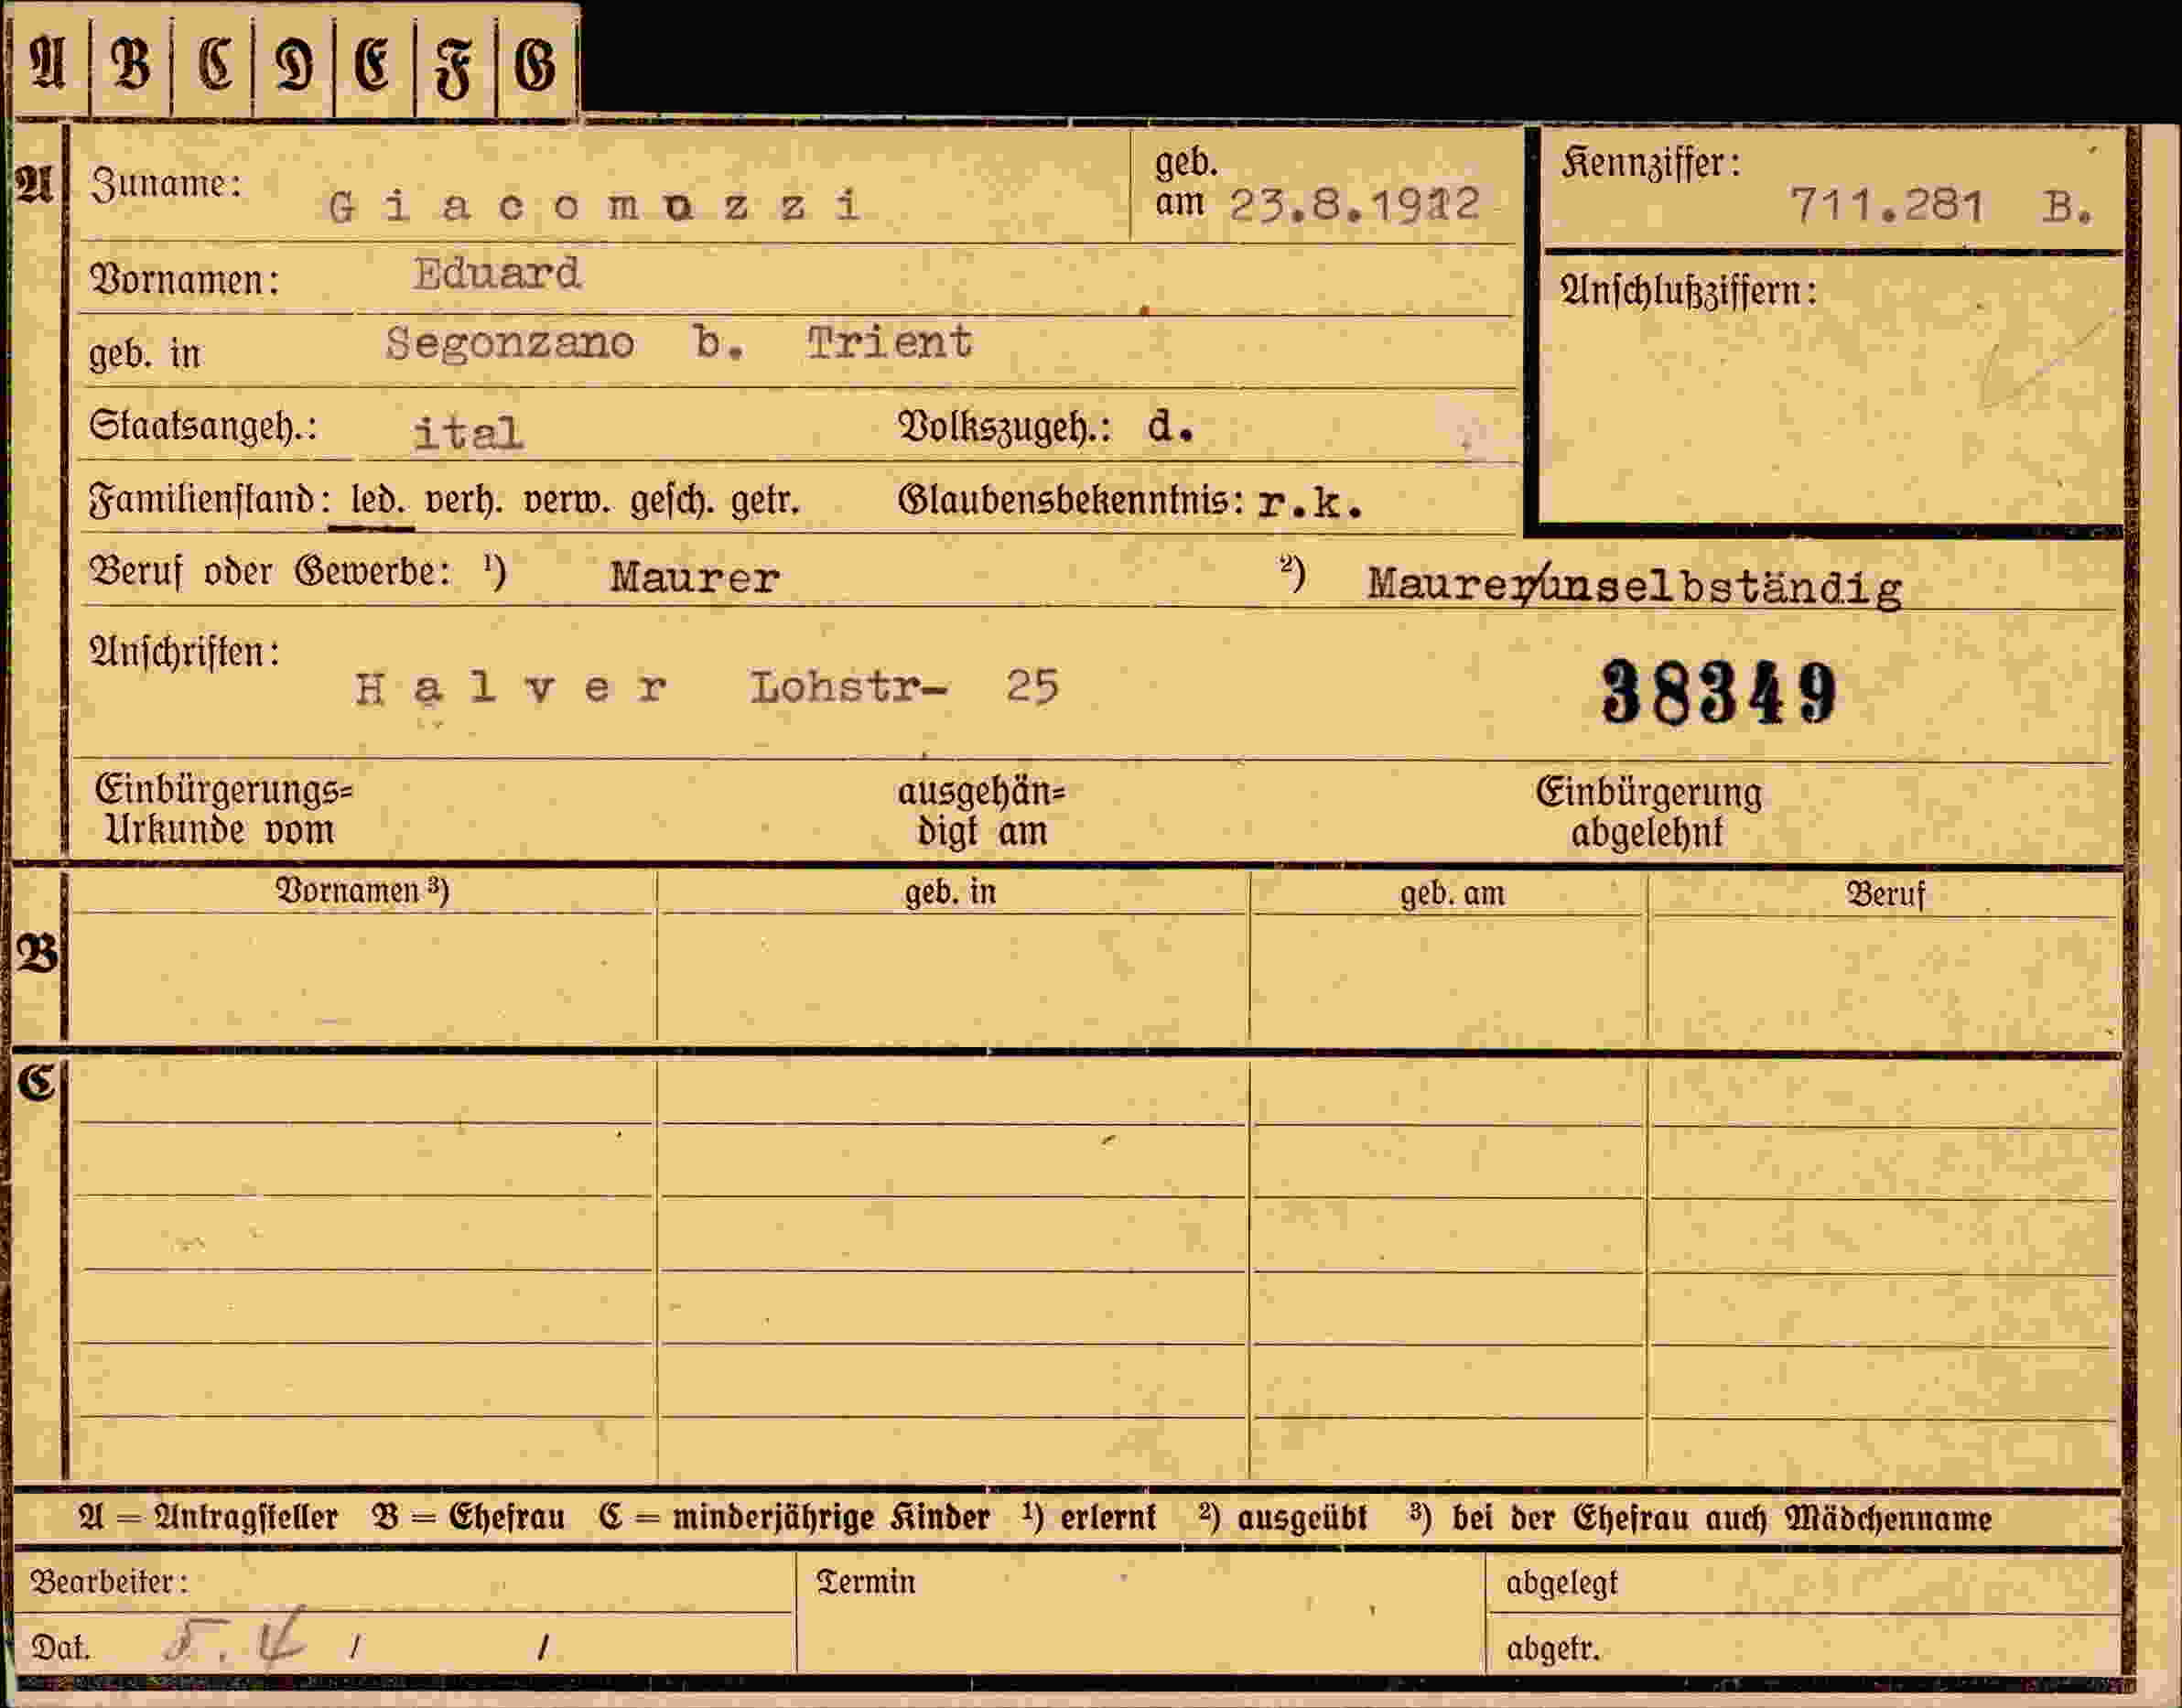 A B C D E F G
A Zuname: Giacomozzi geb. am 23.8.1912 Kennziffer: 711.281 B.
Vornamen: Eduard
Anschlußziffern:
geb. in Segonzano b. Trient
Staatsangeh.: ital Volkszugeh.: d.
Familienstand: led. verh. verw. gesch. getr. Glaubensbekenntnis: r.k.
Beruf oder Gewerbe: ¹) Maurer ²) Maurer/unselbständig
Anschriften: Halver Lohstr- 25
38349
Einbürgerungs= ausgehän= Einbürgerung
Urkunde vom digt am abgelehnt
Vornamen ³) geb. in geb. am Beruf
B
C
A = Antragsteller B = Ehefrau C = minderjährige Kinder ¹) erlernt ²) ausgeübt ³) bei der Ehefrau auch Mädchenname
Bearbeiter: Termin abgelegt
Dat. 5.4 / / abgetr.